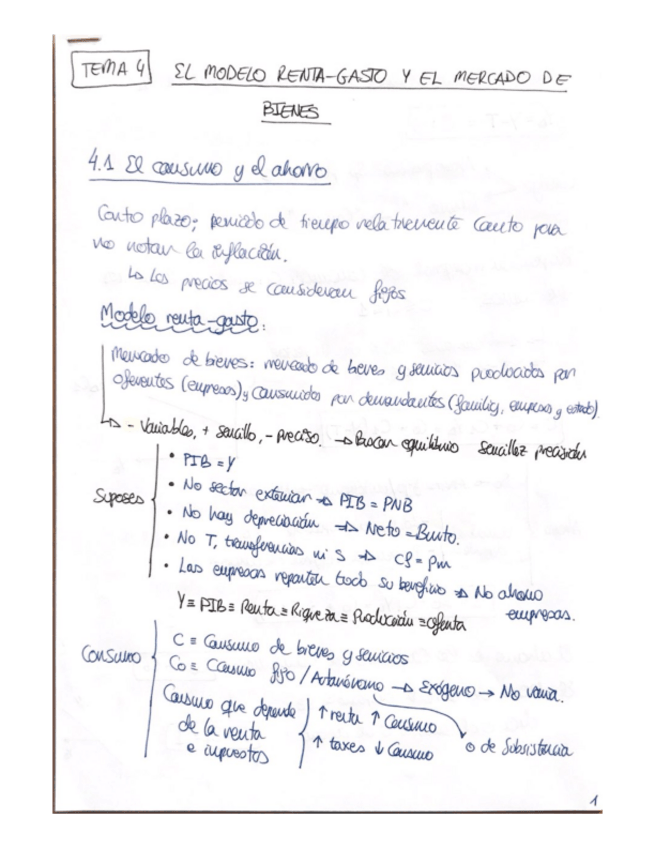 TEMA 4 EL MODELO RENTA-GASTO Y EL MERCADO DE
BIENES
4.1 El consumo y el ahorro
Corto plazo: periodo de tiempo relativamente corto para
no notar la inflación.
↳ Los precios se consideran fijos
Modelo renta-gasto:
Mercado de bienes: mercado de bienes y servicios producidos por
oferentes (empresas) y consumidos por demandantes (familias, empresas y estado).
→ - variables, + sencillo, - preciso. → Buscar equilibrio sencillez precisión
Suposes
• PIB = Y
• No sector exterior → PIB = PNB
• No hay depreciación → Neto = Bruto.
• No T, transferencias ni S → cf = pm
• Las empresas reparten todo su beneficio → No ahorro
empresas.
Y ≡ PIB ≡ Renta ≡ Riqueza ≡ Producción ≡ oferta
Consumo
C ≡ Consumo de bienes y servicios
Co ≡ Consumo fijo / Autonómo → Exógeno → No varia.
Consumo que depende
de la renta
e impuestos
↑ renta ↑ Consumo
↑ taxes ↓ Consumo
o de Subsistencia
1